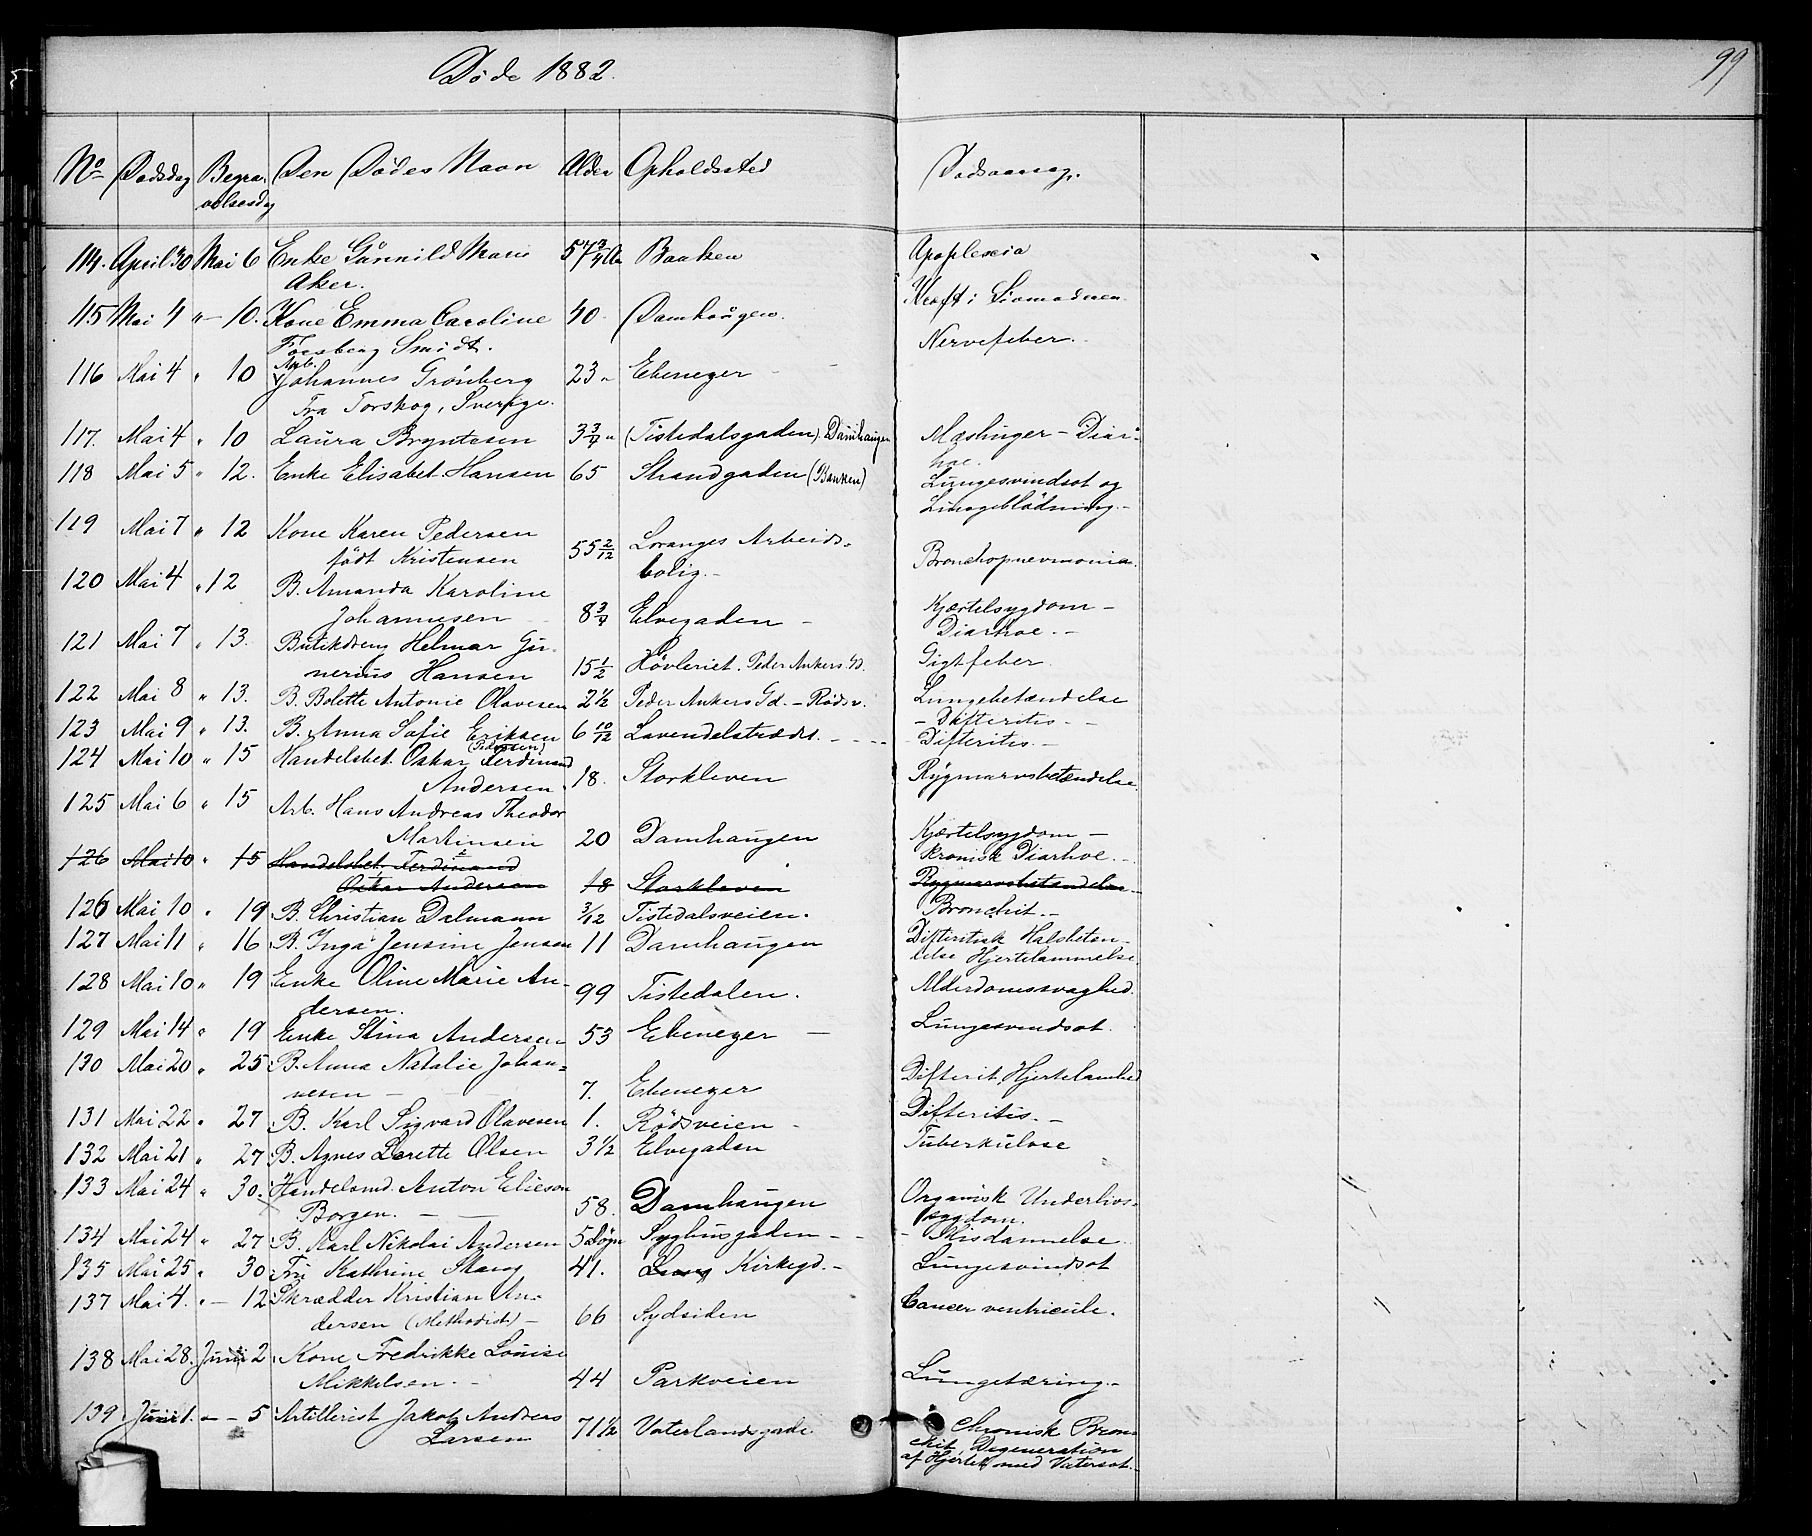 Døde 1882.
99
No Dødsdag Begra- Den Dødes Navn Alder Opholdssted Dødsaarsag.
velsesdag
114. April 30 Mai 6 Enke Gunnild Marie 57 3/4 Aar Banken Apoplexia
Aker.
115 Mai 4 " - 10. Kone Emma Caroline 40 Damhaugen. Kræft i Livmoderen
Forsberg Smidt.
116 Mai 4 " 10 Arb. Johannes Grönberg 23 " Ebenezer Nervefeber.
Fra Torskog, Sverige.
117. Mai 4 " 10 Laura Bryntesen 3 3/4 " (Tistedalsgaden) Damhaugen Mæslinger - Diar-
hoe.
118 Mai 5 " 12. Enke Elisabet Hansen 65 Strandgaden (Banken) Lungesvindsot og
Lungeblödning.-
119 Mai 7 " 12 Kone Karen Pedersen 55 2/12 Loranges Arbeids- Bronchopnevmonia.
født Kristensen bolig.-
120 Mai 4 " 12 B. Amanda Karoline
Johannesen 8 3/4 Elvegaden - Kjærtelsygdom -
Diarhoe.-
121 Mai 7 " 13. Butikdreng Helmar Gu-
nerius Hansen 15 1/2 Høvleriet. Peder Ankers Gd. Gigtfeber
122 Mai 8 " 13. B. Bolette Antonie Olavesen 2 1/2 Peder Ankers Gd. - Rødsv. Lungebetændelse
- Difteritis. -
123 Mai 9 " 13. B. Anna Sofie Eriksen 6 10/12 Lavendelstrædet. - Difteritis. -
(Pedersen)
124 Mai 10 " 15 Handelsbet. Oskar Ferdinand
Andersen. 18. Storkleven Rygmarvsbetændelse
125 Mai 6 " 15 Arb. Hans Andreas Theodor
Martinsen 20 Damhaugen Kjærtelsygdom -
kronisk Diarhoe. -
126 Mai 10 " 15 Handelsbet. Ferdinand
Oskar Andersen 18 Storkleven Rygmarvsbetændelse
126 Mai 10 " 19 B. Christian Dalmann 3/12 Tistedalsveien. Bronchit. -
127 Mai 11 " 16 B. Inga Jensine Jensen 11 Damhaugen Difteritisk Halsbeten-
delse Hjertelammelse.
128 Mai 10 " 19 Enke Oline Marie An-
dersen. 99 Tistedalen. Alderdomssvaghed.
129 Mai 14 " 19 Enke Stina Andersen 53 Ebenezer - Lungesvindsot.
130 Mai 20 " 25 B. Anna Natalie Johan-
nesen - 7. Ebenezer Difterit, Hjertelamhed
131 Mai 22 " 27 B. Karl Sigvard Olavesen 1. Rödsveien - Difteritis. -
132 Mai 21 " 27 B. Agnes Lorette Olsen 3 1/2 Elvegaden Tuberkulose
133 Mai 24 " 30. Handelsmd. Anton Elieson
Borgen. - 58. Damhaugen Organisk Underlivs-
sygdom.
134 Mai 24 " 27 B. Karl Nikolai Andersen 5 Døgn Syghusgaden - - Misdannelse.
135 Mai 25 " 30 Fru Kathrine Skaug 41. Kirkegd. - Lungesvindsot
137 Mai 4. " - 12 Skrædder Kristian An-
dersen (Methodist) - 66 Sydsiden Cancer ventricule.
138 Mai 28. Juni 2 Kone Fredrikke Louise
Mikkelsen. - 44 Parkveien Lungetæring. -
139 Juni 1. " - 5 Artillerist Jakob Andreas
Larsen 71 1/2 Vaterlandsgade Chronisk Bron-
chit, Degeneration
af Hjertet med Vatersot. -